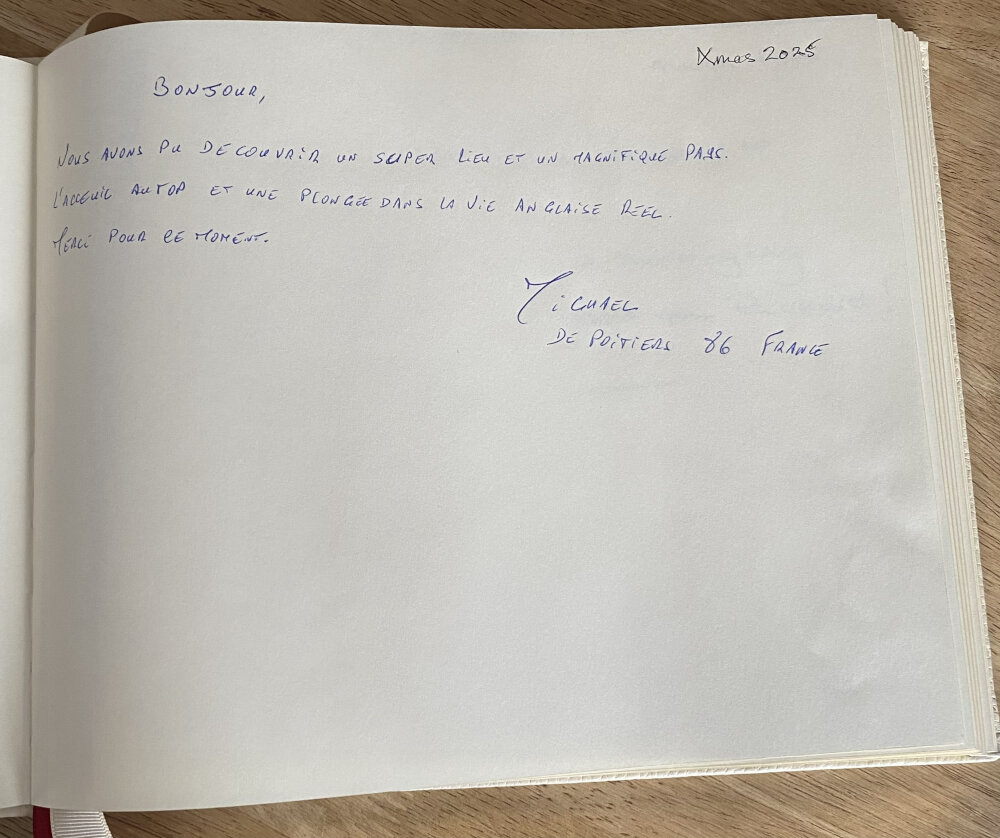 Xmas 2025
BONJOUR,
NOUS AVONS PU DECOUVRIR UN SUPER LIEU ET UN MAGNIFIQUE PAYS.
L'ACCEUIL AU TOP ET UNE PLONGÉE DANS LA VIE ANGLAISE REEL.
MERCI POUR CE MOMENT.
MICHAEL
DE POITIERS 86 FRANCE